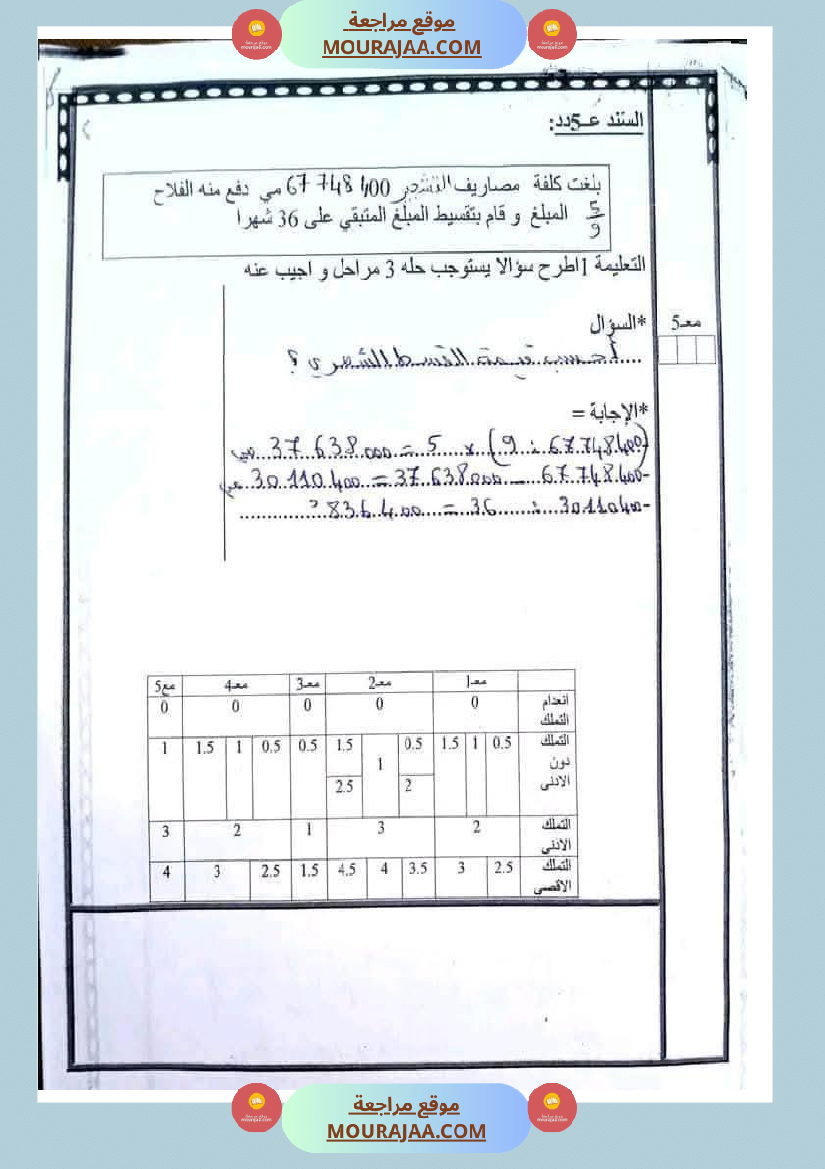 موقع مراجعة
MOURAJAA.COM
السند عـ5دد:
بلغت كلفة مصاريف التشجير 67 748 400 مي دفع منه الفلاح
5/9 المبلغ و قام بتقسيط المبلغ المتبقي على 36 شهرا
التعليمة 1اطرح سؤالا يستوجب حله 3 مراحل و اجيب عنه
معـ5
*السؤال
أحسب قيمة القسط الشهري ؟
*الإجابة =
(67.748.400 : 9) x 5 = 37 638 000 مي
67.748.400 - 37.638.000 = 30.110.400 مي
30.110.400 : 36 = 836.400
معـ1 معـ2 معـ3 معـ4 مع5
انعدام التملك 0 0 0 0 0
التملك دون الادنى 0.5 1 1.5 0.5 1 1.5 0.5 0.5 1 1.5 1
2 2.5
التملك الادنى 2 3 1 2 3
التملك الاقصى 2.5 3 3.5 4 4.5 1.5 2.5 3 4
موقع مراجعة
MOURAJAA.COM